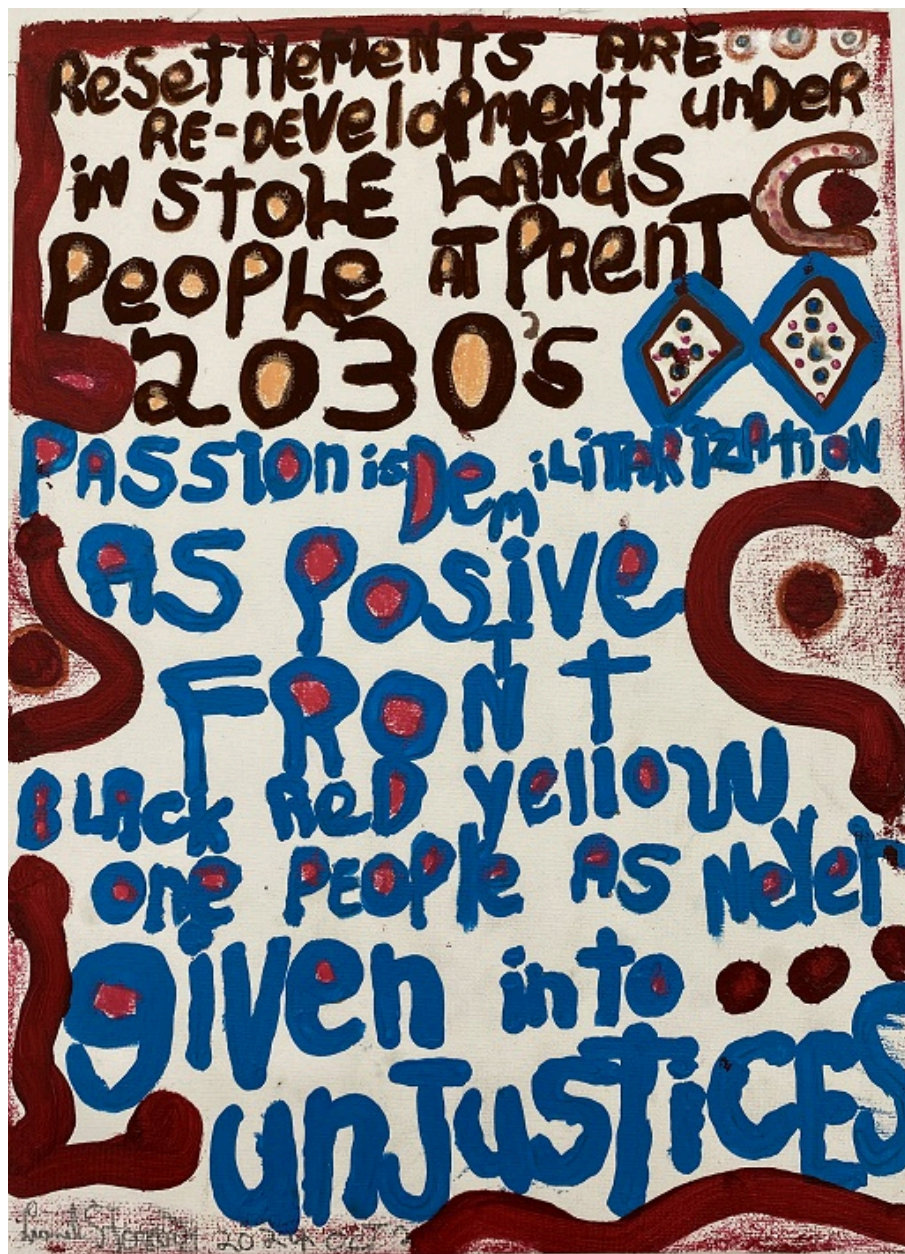 ReSettlements ARE
RE-DEVelopment unDeR
in StOLE LANdS
PEOPLE AT PRenT
2030's
PASSion is DemiLiTARIZAtiON
AS POSiTIVe
FRONT
BLACK ReD yellow
one PEOPle AS NeVer
given into
unJuSTiCES
2024 OCT 2